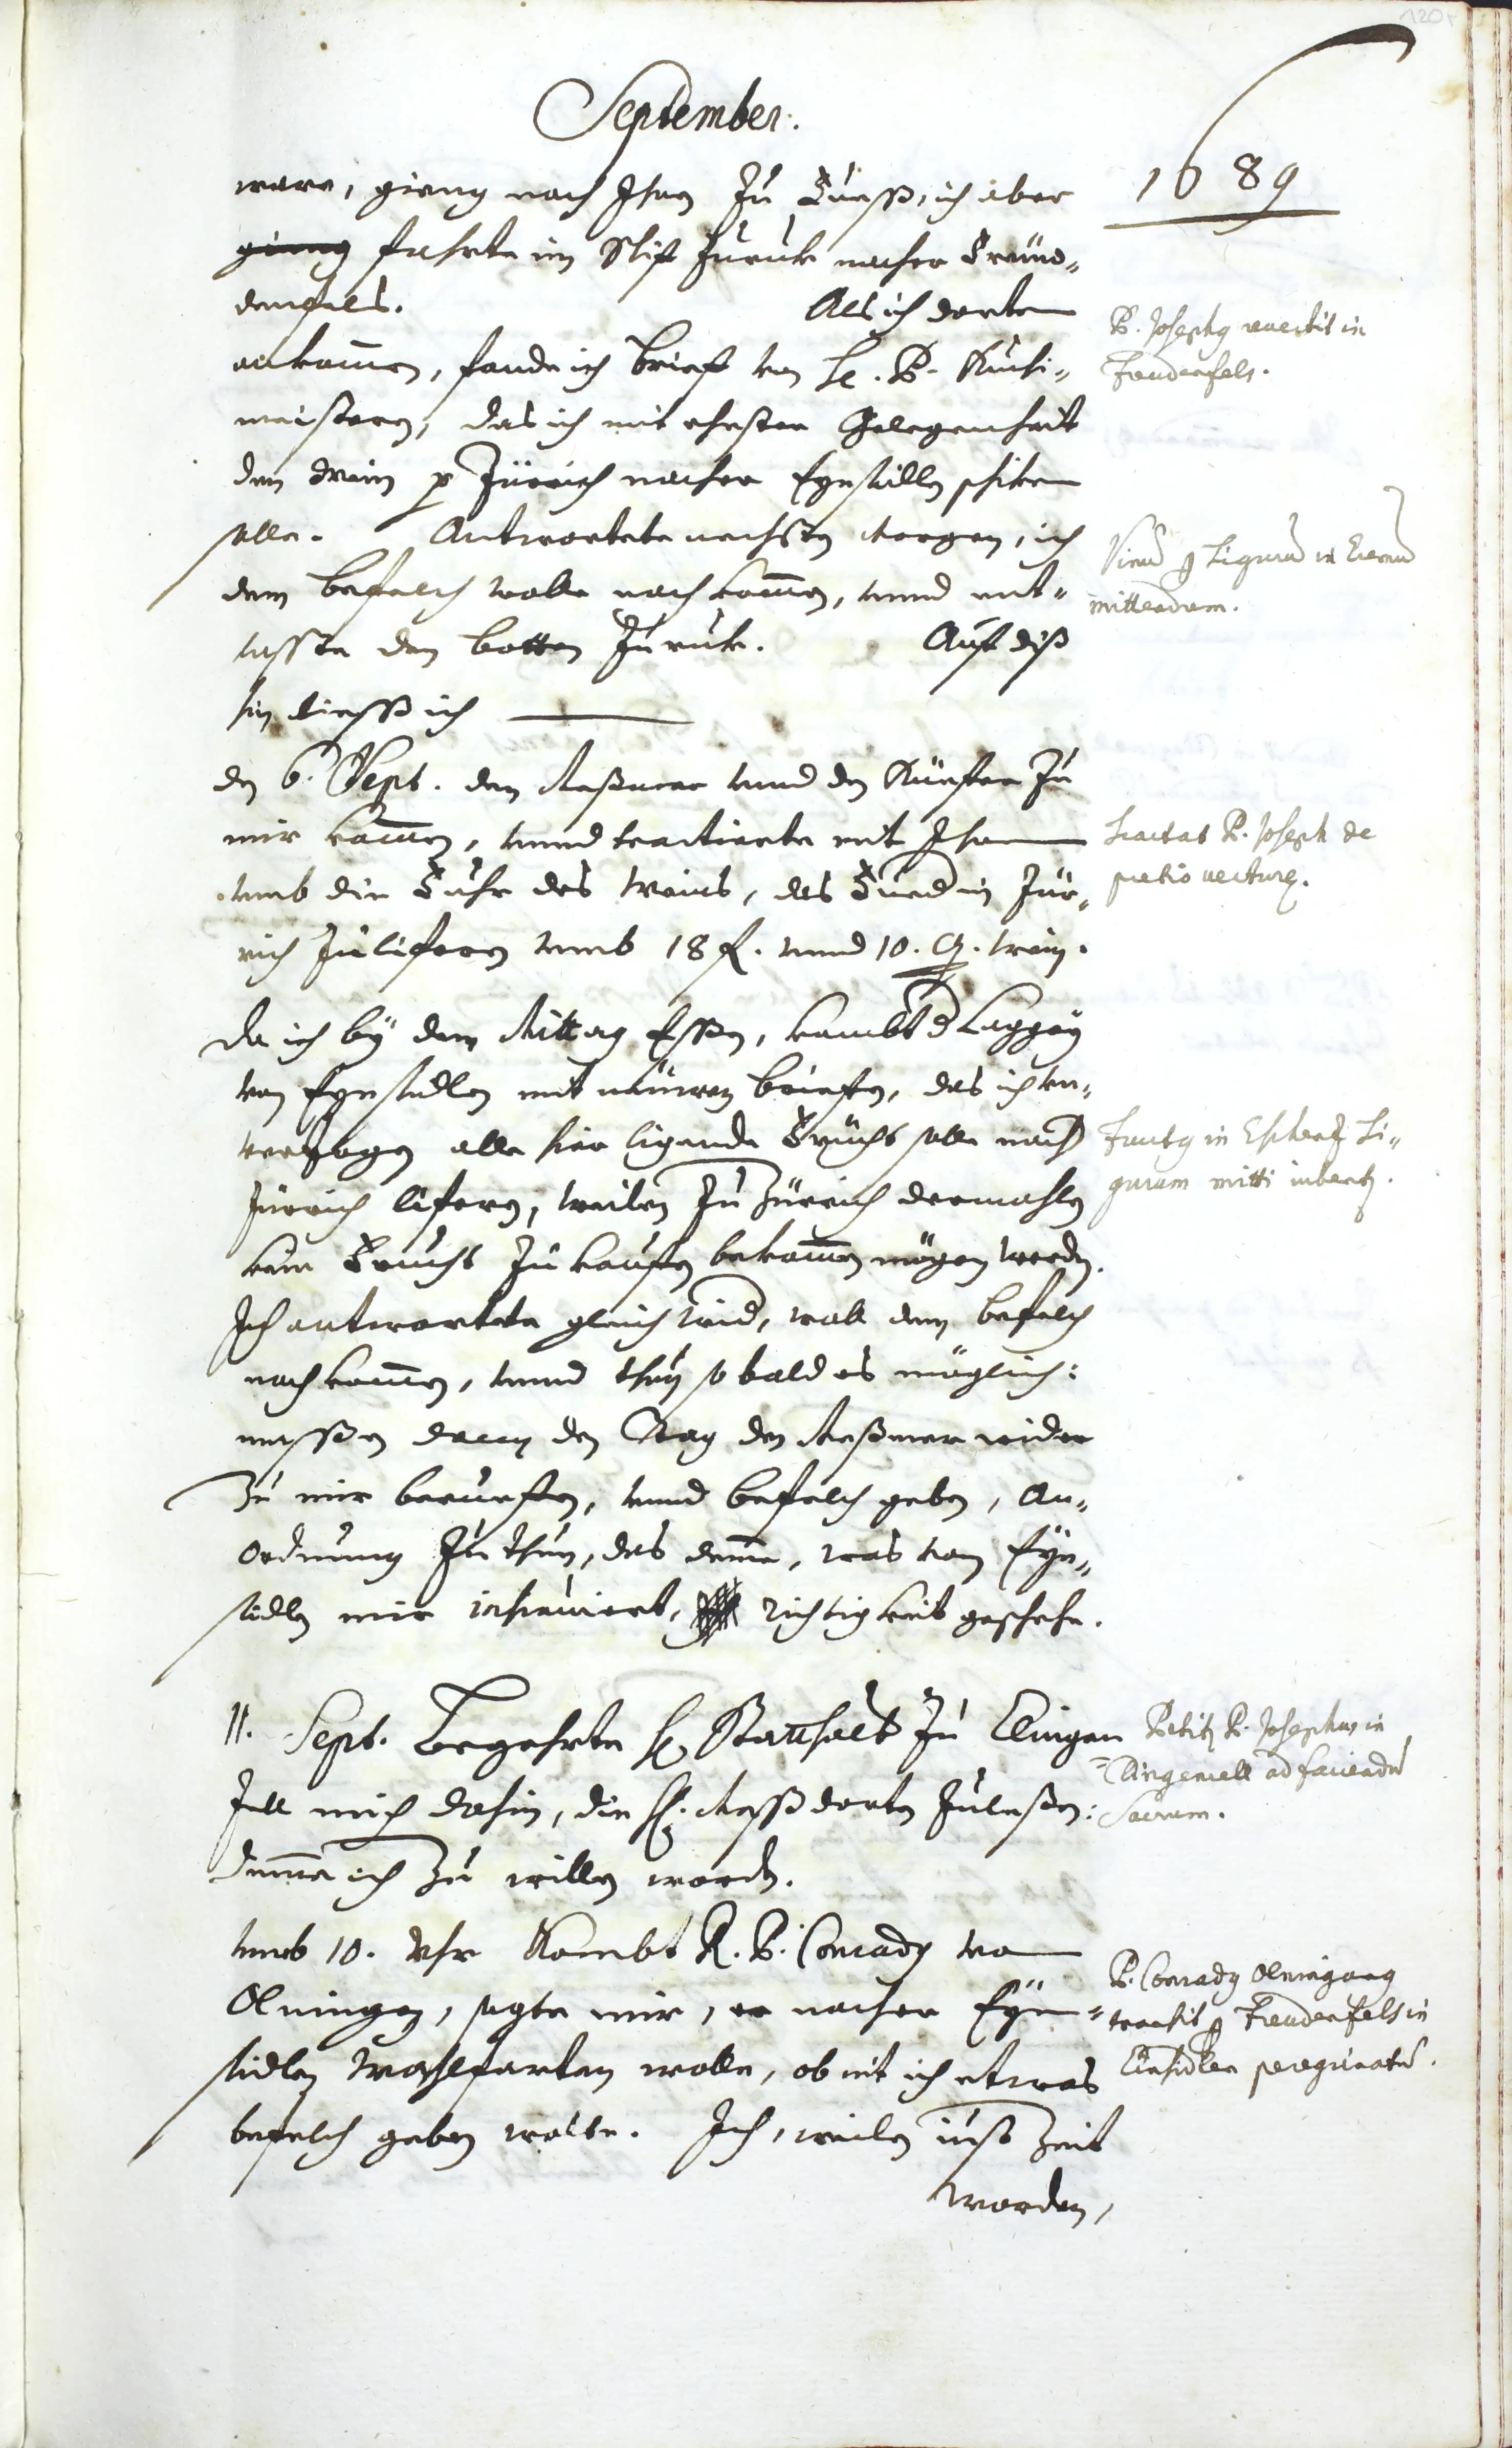 120r
September.
1689
ware, gieng nach Ihm zu Fuess, ich aber
gieng fahrte im Schif zuruk nacher Freüd„
denfels. Als ich dorten
ankommen, fande ich brief von H. P. Kuchi„
meisteren, das ich mit ehesten Gelegenheit
den wein p Zürrich nacher Eynsidlen schiken
solle. Antwortete nechsten Morgen, ich
dem befelch wolle nach kommen, vnnd ent„
lasste den botten zuruk. Auf diss
hin liesse ich
P. Josephq reuertit in
Freudenfels.
Vinum p Tigurum in Eremum
mittendum.
den 6. Sept. den Messmer vnnd den Küeffer zu
mir kommen, vnnd tractierte mit Ihnen
vmb die Fuhr des weins, das Fueder in Zür„
rich zu liferen vmb 18 fl. vnnd 10. q. wein.
Tractat P. Joseph de
pretio vecturę.
Da ich bÿ dem Mittag Essen, kombt d Laggey
von Eynsidlen mit neüwen briefen, das ich vn„
verzogen alle hier ligende Frücht solle nach
Zürrich lifern, weilen zu Zürrich dermahlen
kein Frucht zu kauffen bekommen mögen werden.
Ich antwortete gleich wider, woll dem befelch
nach kommen, vnnd thuen so bald es möglich:
massen dann den Tag den Messmer wider
zu mir berueffen, vnnd befelch geben, An„
ordnung zu thun, das deme, was von Eyn„
sidlen mir insinuiert, richtigkeit geschehe.
Fructq in Eschenz Ti„
gurum mitti iubentur.
11. Sept. Begehrte H. Statthalt zu Clingen
Zell mich dahin, die H. Mess dorten zu lesen:
deme ich zu willen worden.
Petitur P. Josephus in
Clingenzell ad faciendum
Sacrum.
vmb 10. Vhr kombt R. P. Conradq von
Olningen, sagte mir, er nacher Eyn„
sidlen Wahlfarten wolle, ob nit ich etwas
befelch geben wolte. Ich, weilen iust Zeit
worden,
P. Conradq Olningang
transit p Freudenfels in
Einsidlen peregrinatum.